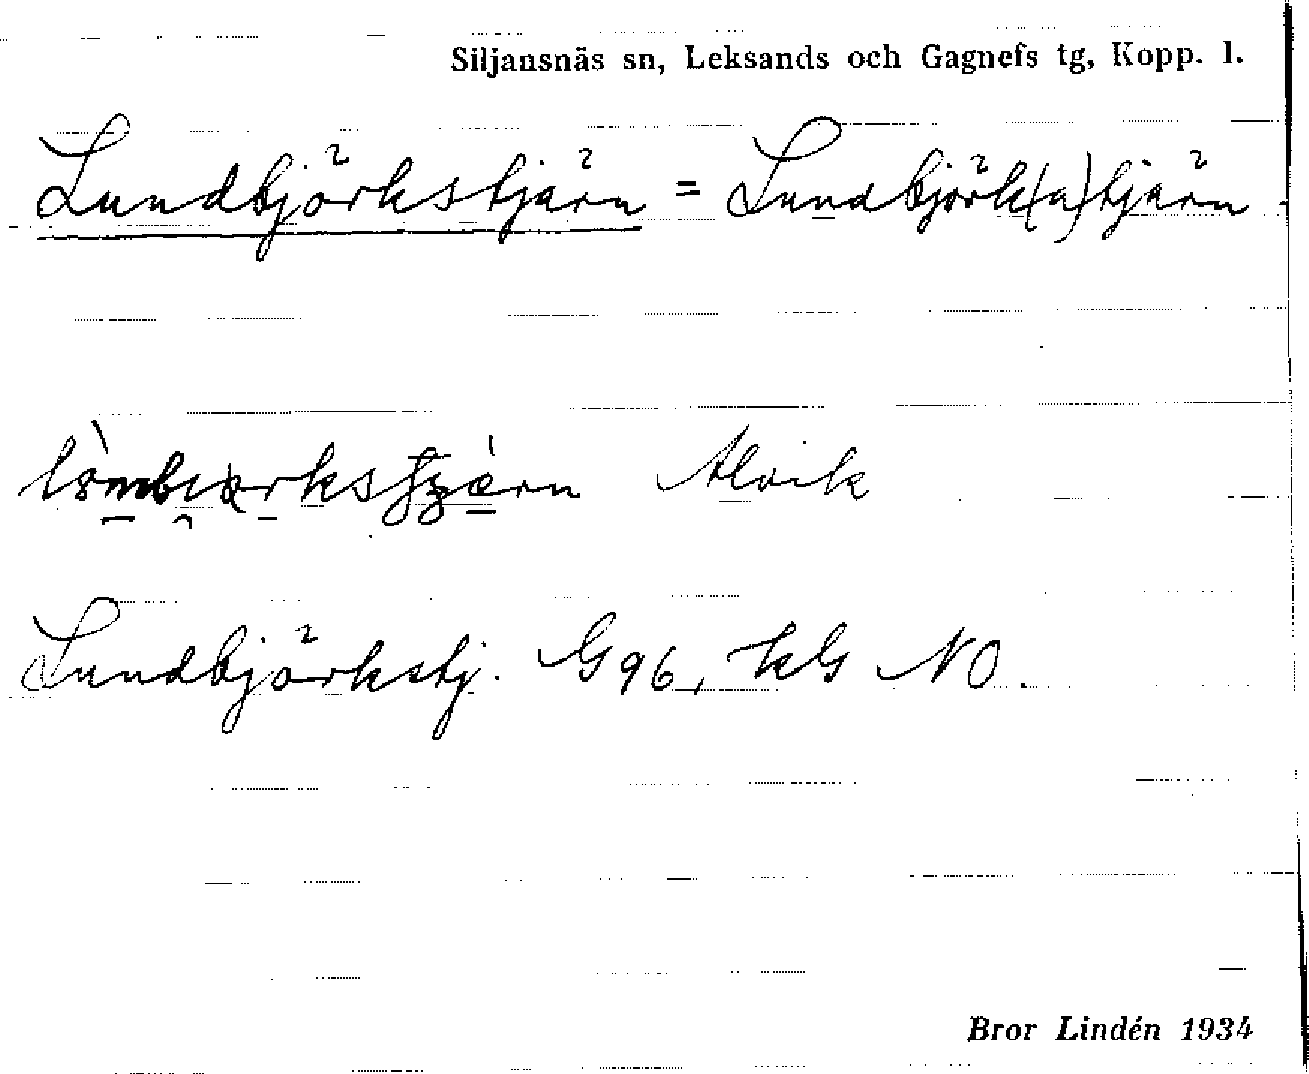 Siljansnäs sn, Leksands och Gagnefs tg, Kopp. l.
Lundbjörkstjärn = Lundbjörk(a)tjärn
Alvik
Lundbjörkstj. G96, kG NO.
Bror Lindén 1934